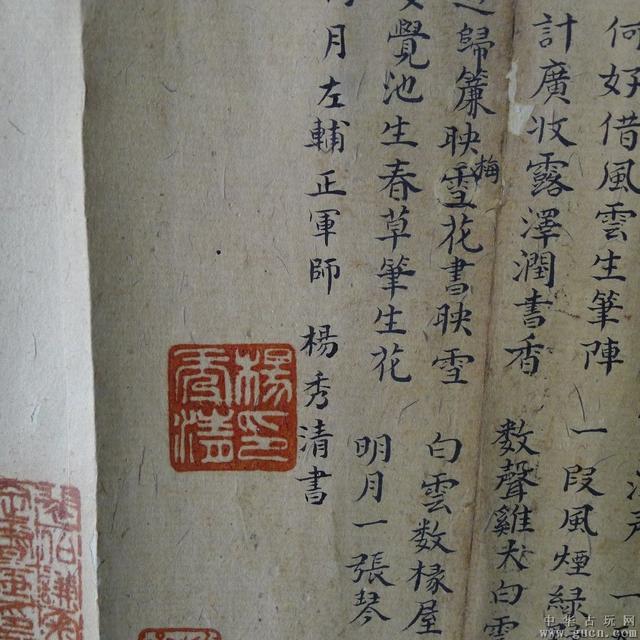 何好借風雲生筆陣
一段風煙綠
計廣收露澤潤書香
數聲雞犬白雲
歸簾映雪花書映雪
梅
白雲數椽屋
覺池生春草筆生花
明月一張琴
月左輔正軍師 楊秀清書
楊秀清印
中华古玩网
www.gucn.com